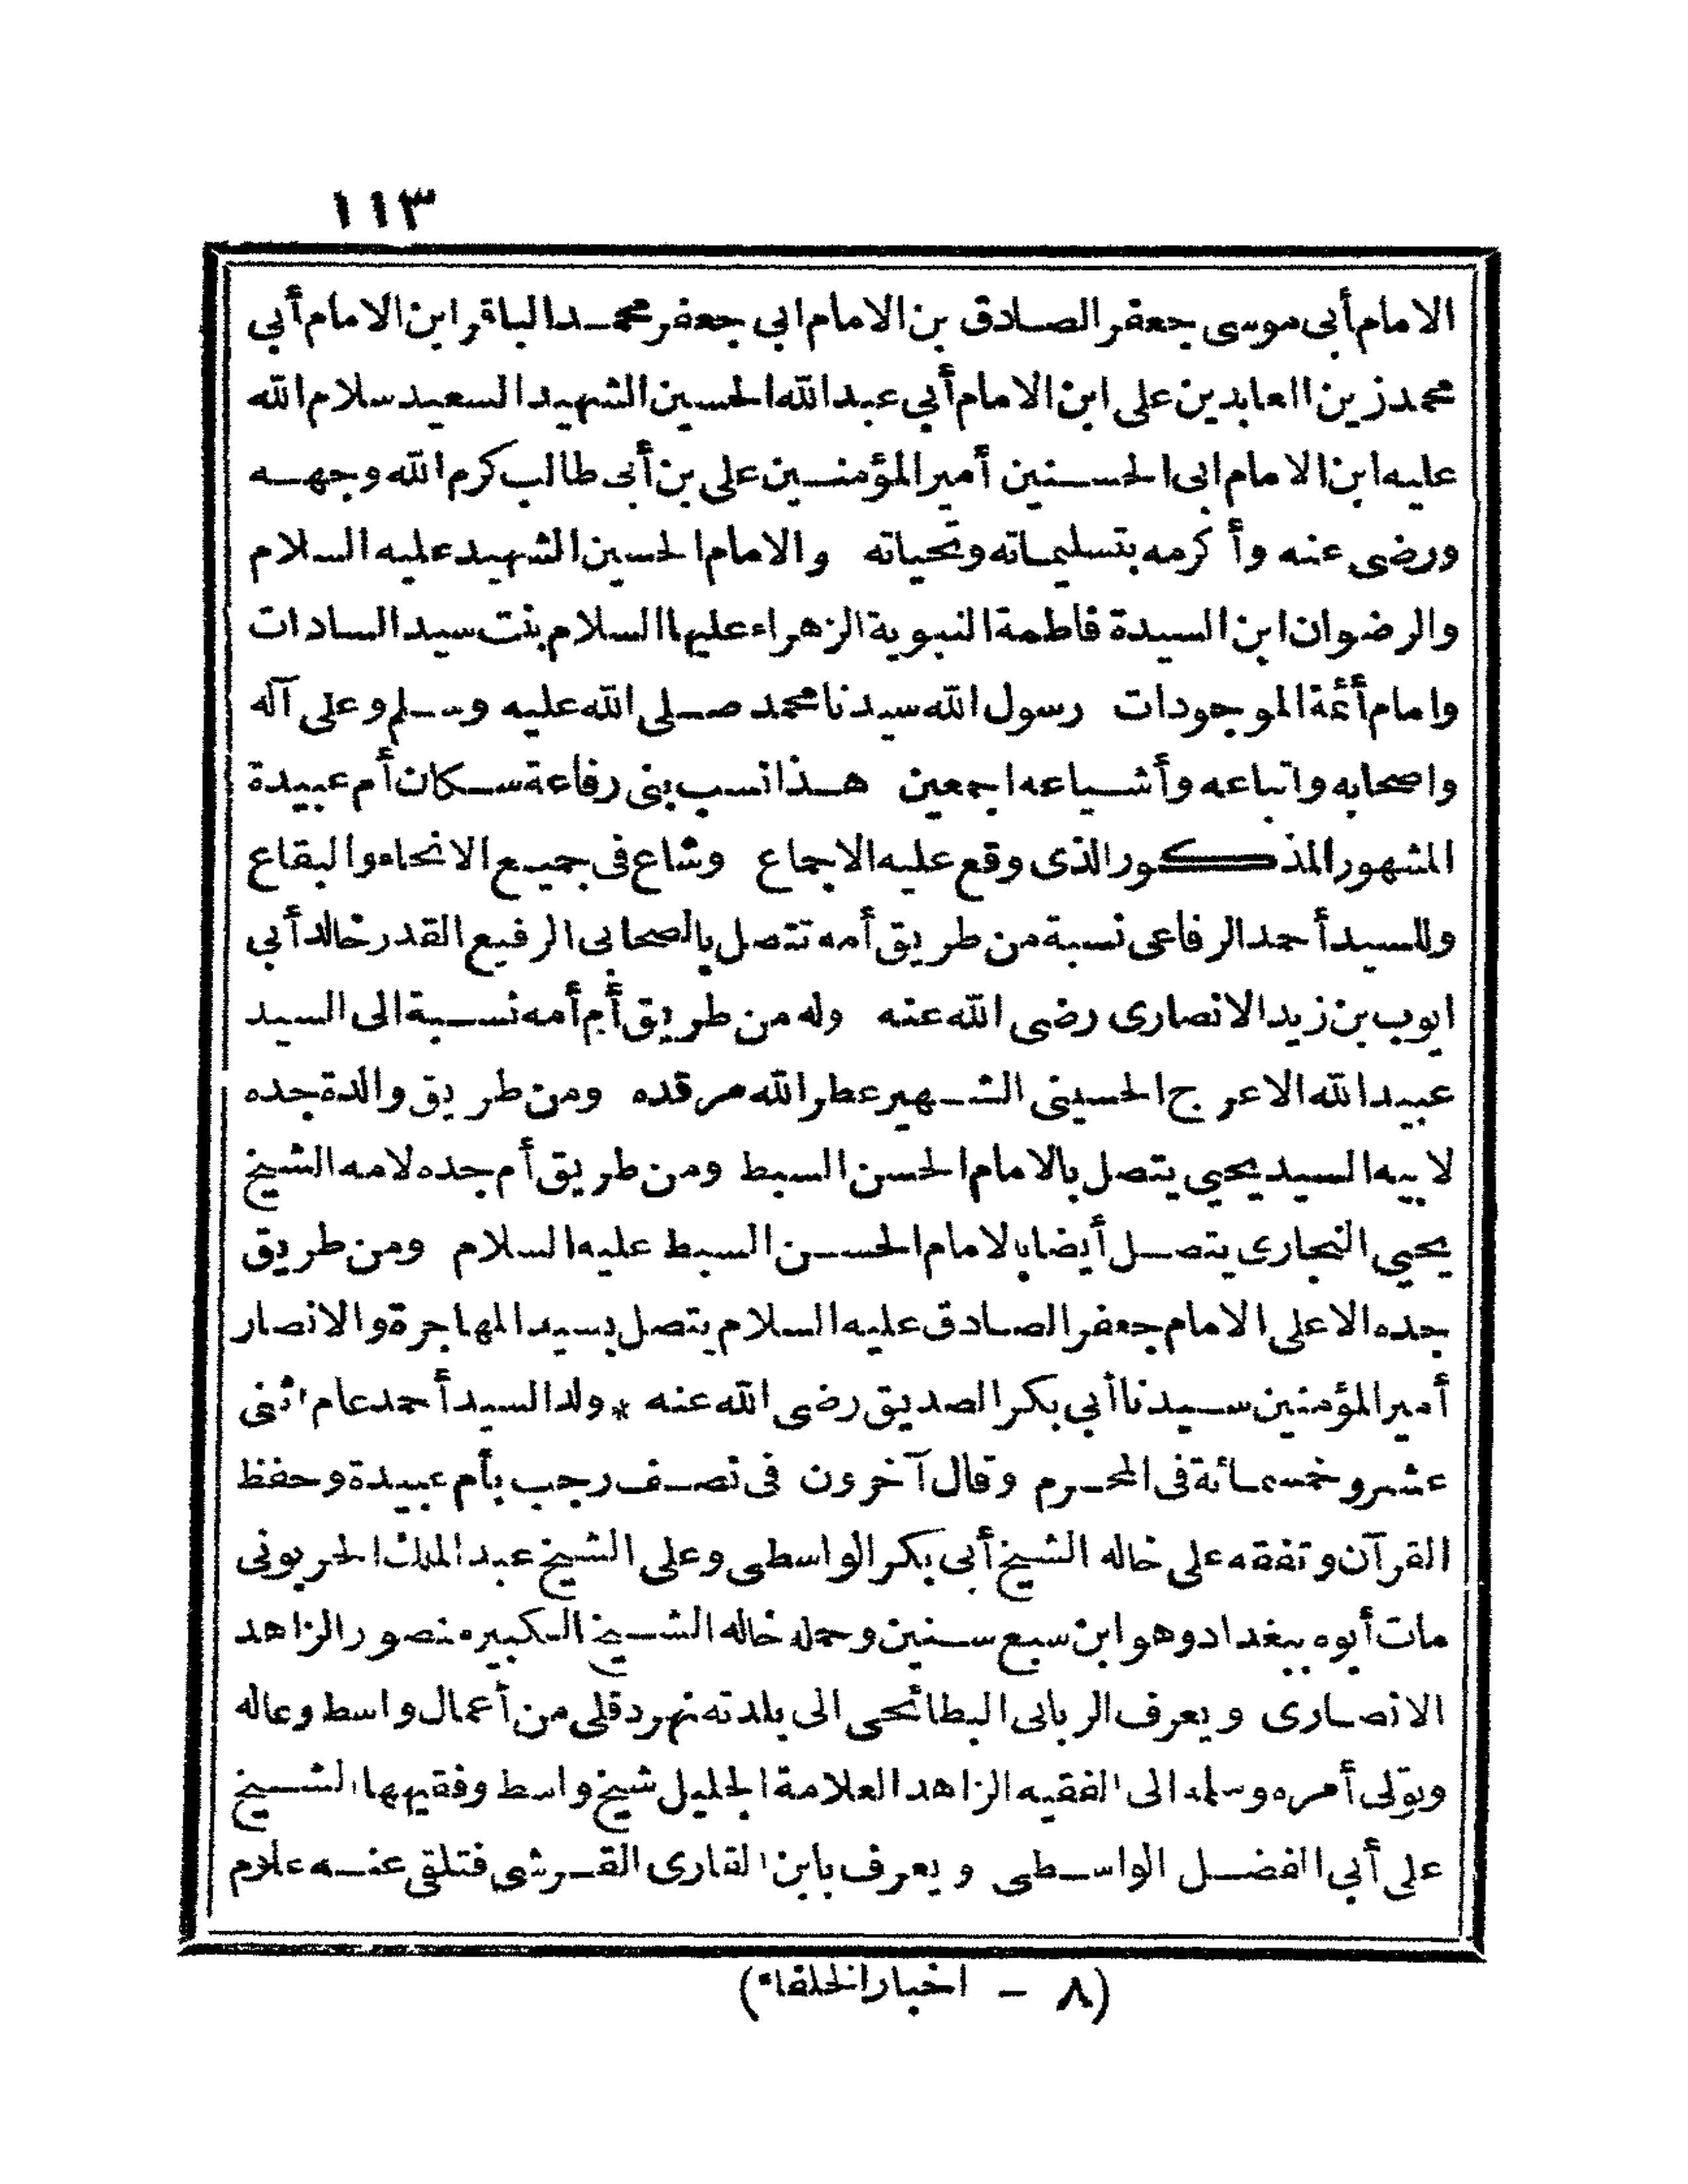 ١١٣
الامام أبى موسى جعفر الصادق بن الامام ابي جعفر محمد الباقر ابن الامام أبي
محمد زين العابدين على ابن الامام أبي عبد الله الحسين الشهيد السعيد سلام الله
عليه ابن الامام ابى الحسنين أمير المؤمنين على بن أبى طالب كرم الله وجهه
ورضى عنه وأكرمه بتسليماته وتحياته والامام الحسين الشهيد عليه السلام
والرضوان ابن السيدة فاطمة النبوية الزهراء عليها السلام بنت سيد السادات
وامام أئمة الموجودات رسول الله سيدنا محمد صلى الله عليه وسلم وعلى آله
واصحابه واتباعه وأشياعه اجمعين هذا نسب بنى رفاعة سكان أم عبيدة
المشهور المذكور الذى وقع عليه الاجماع وشاع فى جميع الانحاء والبقاع
وللسيد أحمد الرفاعى نسبة من طريق أمه تتصل بالصحابى الرفيع القدر خالد أبي
ايوب بن زيد الانصارى رضى الله عنه وله من طريق أم أمه نسبة الى السيد
عبيد الله الاعرج الحسينى الشهير عطر الله مرقده ومن طريق والدة جده
لابيه السيد يحيي يتصل بالامام الحسن السبط ومن طريق أم جده لامه الشيخ
يحيي النجارى يتصل أيضا بالامام الحسن السبط عليه السلام ومن طريق
جده الاعلى الامام جعفر الصادق عليه السلام يتصل بسيد المهاجرة والانصار
أمير المؤمنين سيدنا أبي بكر الصديق رضى الله عنه * ولد السيد أحمد عام اثنى
عشر وخمسمائة فى المحرم وقال آخرون فى نصف رجب بأم عبيدة وحفظ
القرآن وتفقه على خاله الشيخ أبى بكر الواسطى وعلى الشيخ عبد الملك الحربونى
مات أبوه ببغداد وهو ابن سبع سنين وحمله خاله الشيخ الكبير منصور الزاهد
الانصارى ويعرف الربابى البطائحى الى بلدته نهر دقلى من أعمال واسط وعاله
وتولى أمره وسلمه الى الفقيه الزاهد العلامة الجليل شيخ واسط وفقيهها الشيخ
على أبي الفضل الواسطى ويعرف بابن القارى القرشى فتلقى عنه علام
(٨ - اخبار الخلفاء)